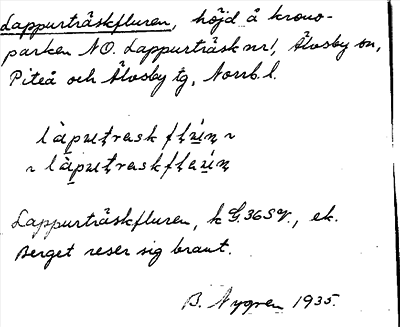 Lappurträskfluren, höjd å krono-
parken NO. Lappurträsk nr 1, Älvsby sn,
Piteå och Älvsby tg, Norrb. l.
làpụtrask
làpụtraskflaụ́ṇ
Lappurträskfluren, k G.36SV., ek.
Berget reser sig brant.
B. Nygren 1935.